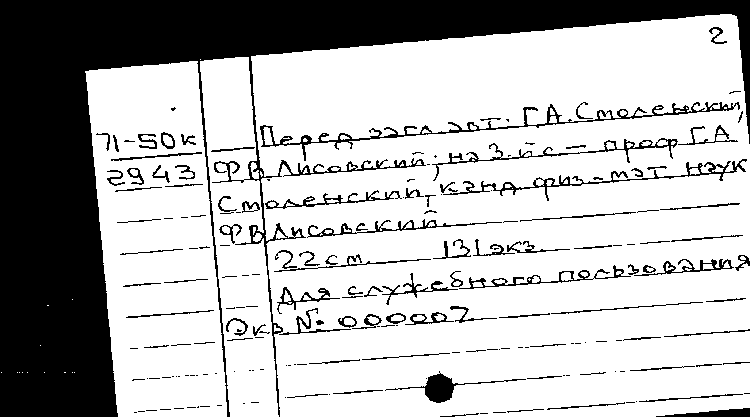 2
71-50к Перед загл. авт.: Г.А. Смоленский,
2943 Ф.В. Лисовский; на 3-й с. — проф Г.А
Смоленский, канд физ-мат. наук
Ф.В Лисовский.
22 см. 131 экз.
Для служебного пользования
Экз № 000007